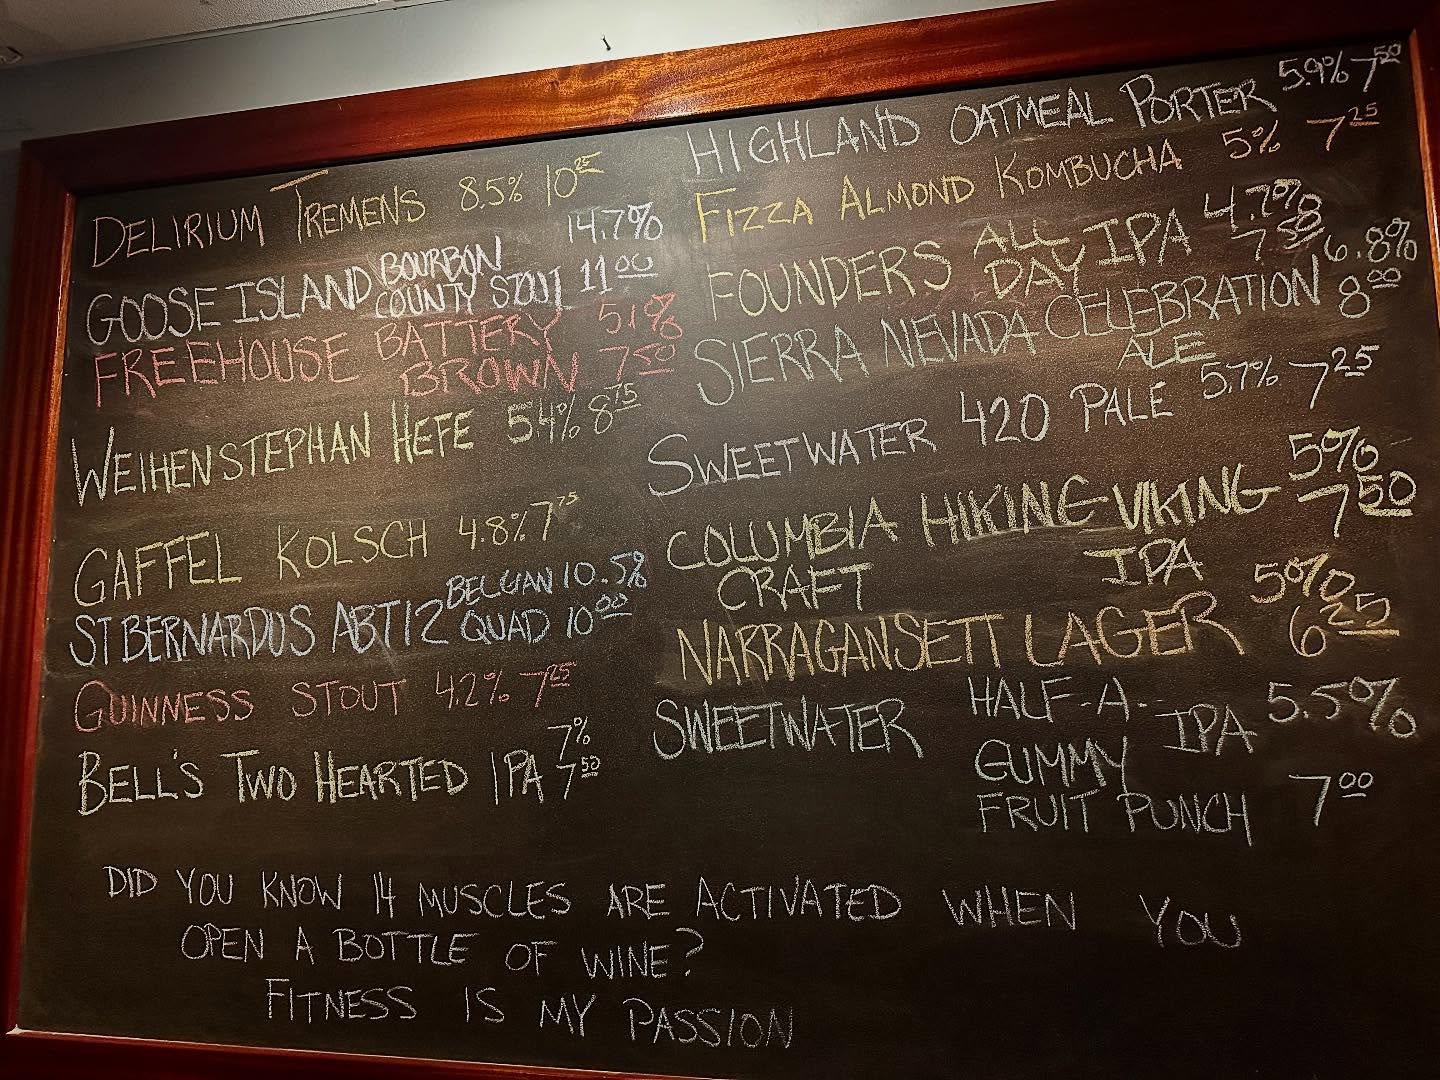 DELIRIUM TREMENS 8.5% 10.25
GOOSE ISLAND BOURBON COUNTY STOUT 14.7% 11.00
FREEHOUSE BATTERY BROWN 5.1% 7.50
WEIHENSTEPHAN HEFE 5.4% 8.75
GAFFEL KOLSCH 4.8% 7.75
ST BERNARDUS ABT 12 BELGIAN QUAD 10.5% 10.00
GUINNESS STOUT 4.2% 7.25
BELL'S TWO HEARTED IPA 7% 7.50
HIGHLAND OATMEAL PORTER 5.9% 7.50
FIZZA ALMOND KOMBUCHA 5% 7.25
FOUNDERS ALL DAY IPA 4.7% 7.50
SIERRA NEVADA CELEBRATION ALE 6.8% 8.00
SWEETWATER 420 PALE 5.7% 7.25
COLUMBIA CRAFT HIKING VIKING IPA 5% 7.50
NARRAGANSETT LAGER 5% 6.25
SWEETWATER HALF-A-GUMMY FRUIT PUNCH IPA 5.5% 7.00
DID YOU KNOW 14 MUSCLES ARE ACTIVATED WHEN YOU
OPEN A BOTTLE OF WINE?
FITNESS IS MY PASSION